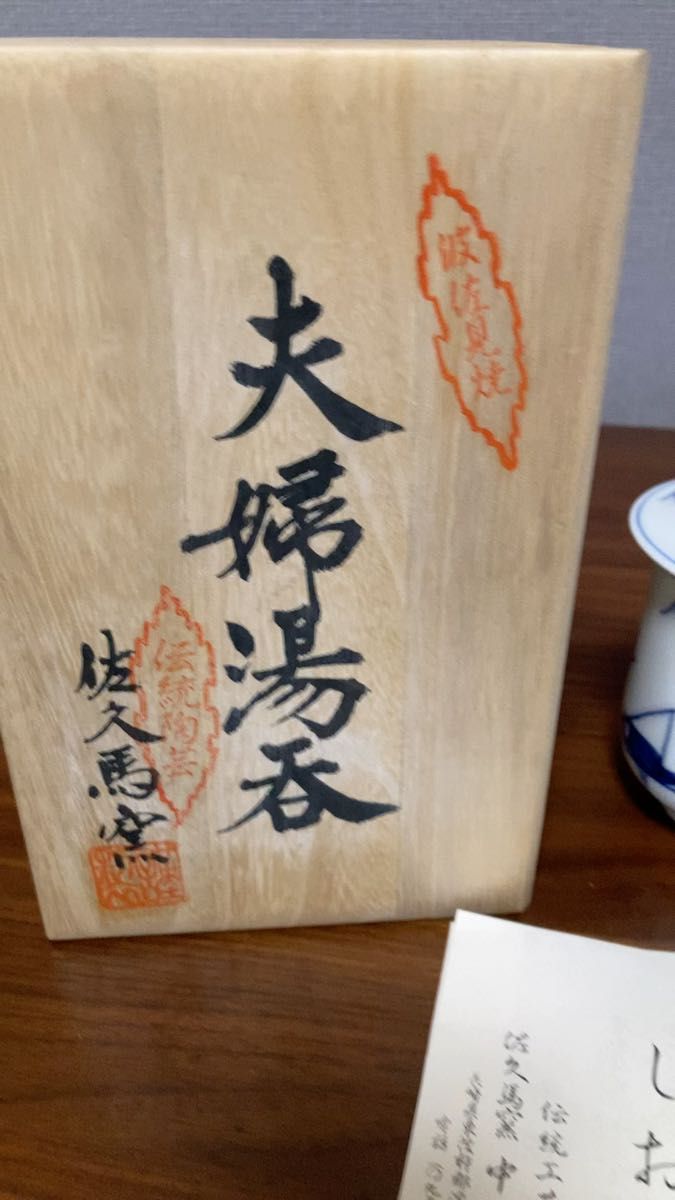 波佐見焼
夫婦湯呑
伝統陶芸
佐久馬窯
しお
伝統工
佐久馬窯 中